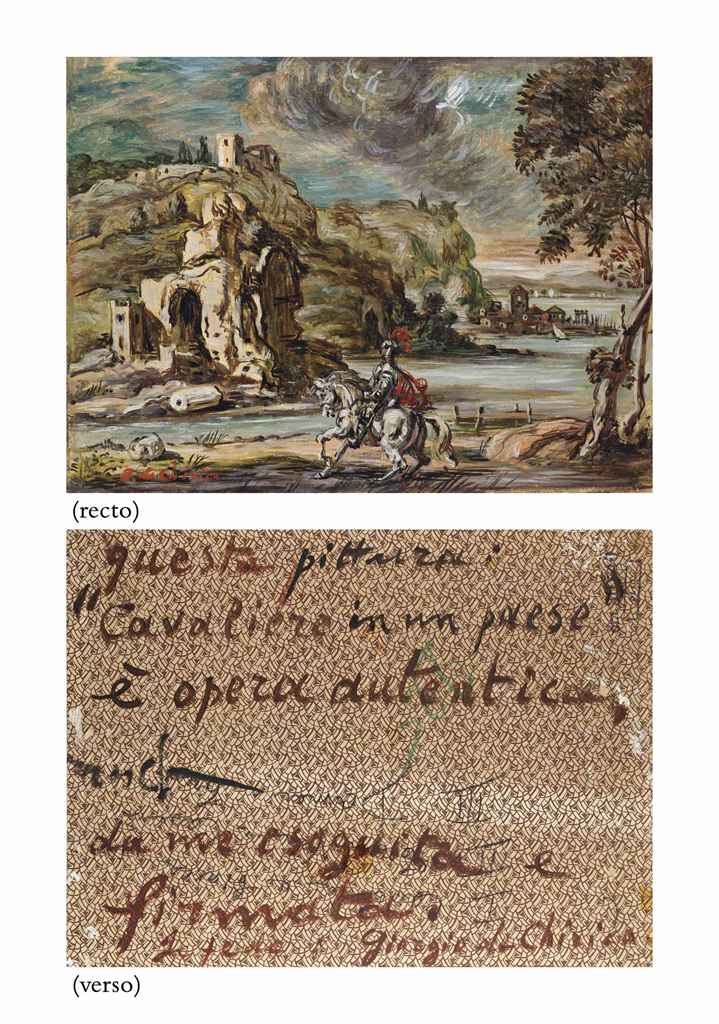 (recto)
questa pittura:
"Cavaliere in un paese
è opera autentica,
da me eseguita e
III
II
I
firmata.
In fede Giorgio de Chirico
(verso)